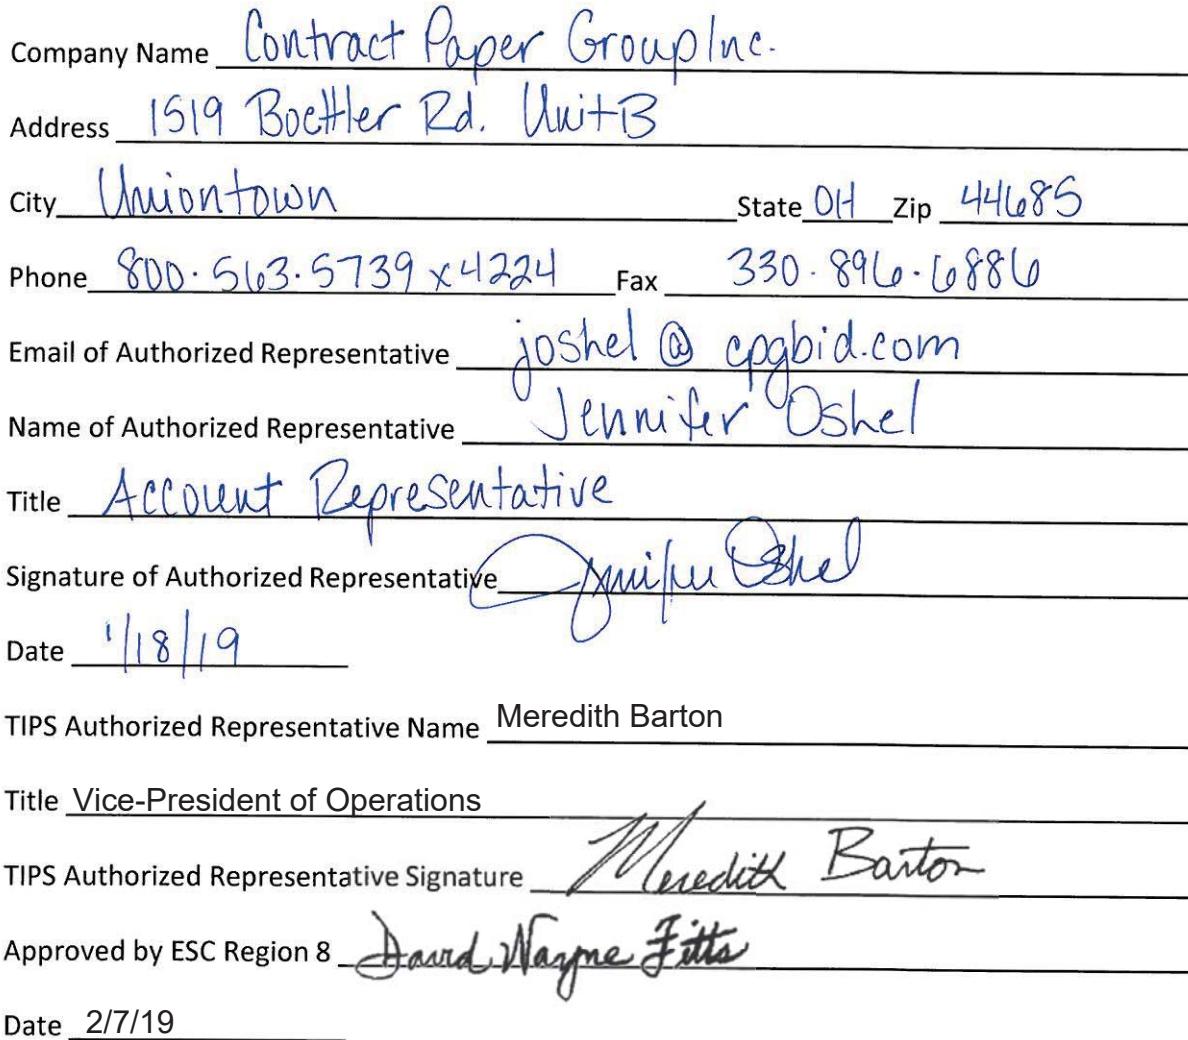 Company Name Contract Paper Group Inc.
Address 1519 Boettler Rd. Unit B
City Uniontown State OH Zip 44685
Phone 800.563.5739 x4224 Fax 330.896.6886
Email of Authorized Representative joshel@cpgbid.com
Name of Authorized Representative Jennifer Oshel
Title Account Representative
Signature of Authorized Representative Jennifer Oshel
Date 1/18/19
TIPS Authorized Representative Name Meredith Barton
Title Vice-President of Operations
TIPS Authorized Representative Signature Meredith Barton
Approved by ESC Region 8 David Wayne Fitts
Date 2/7/19